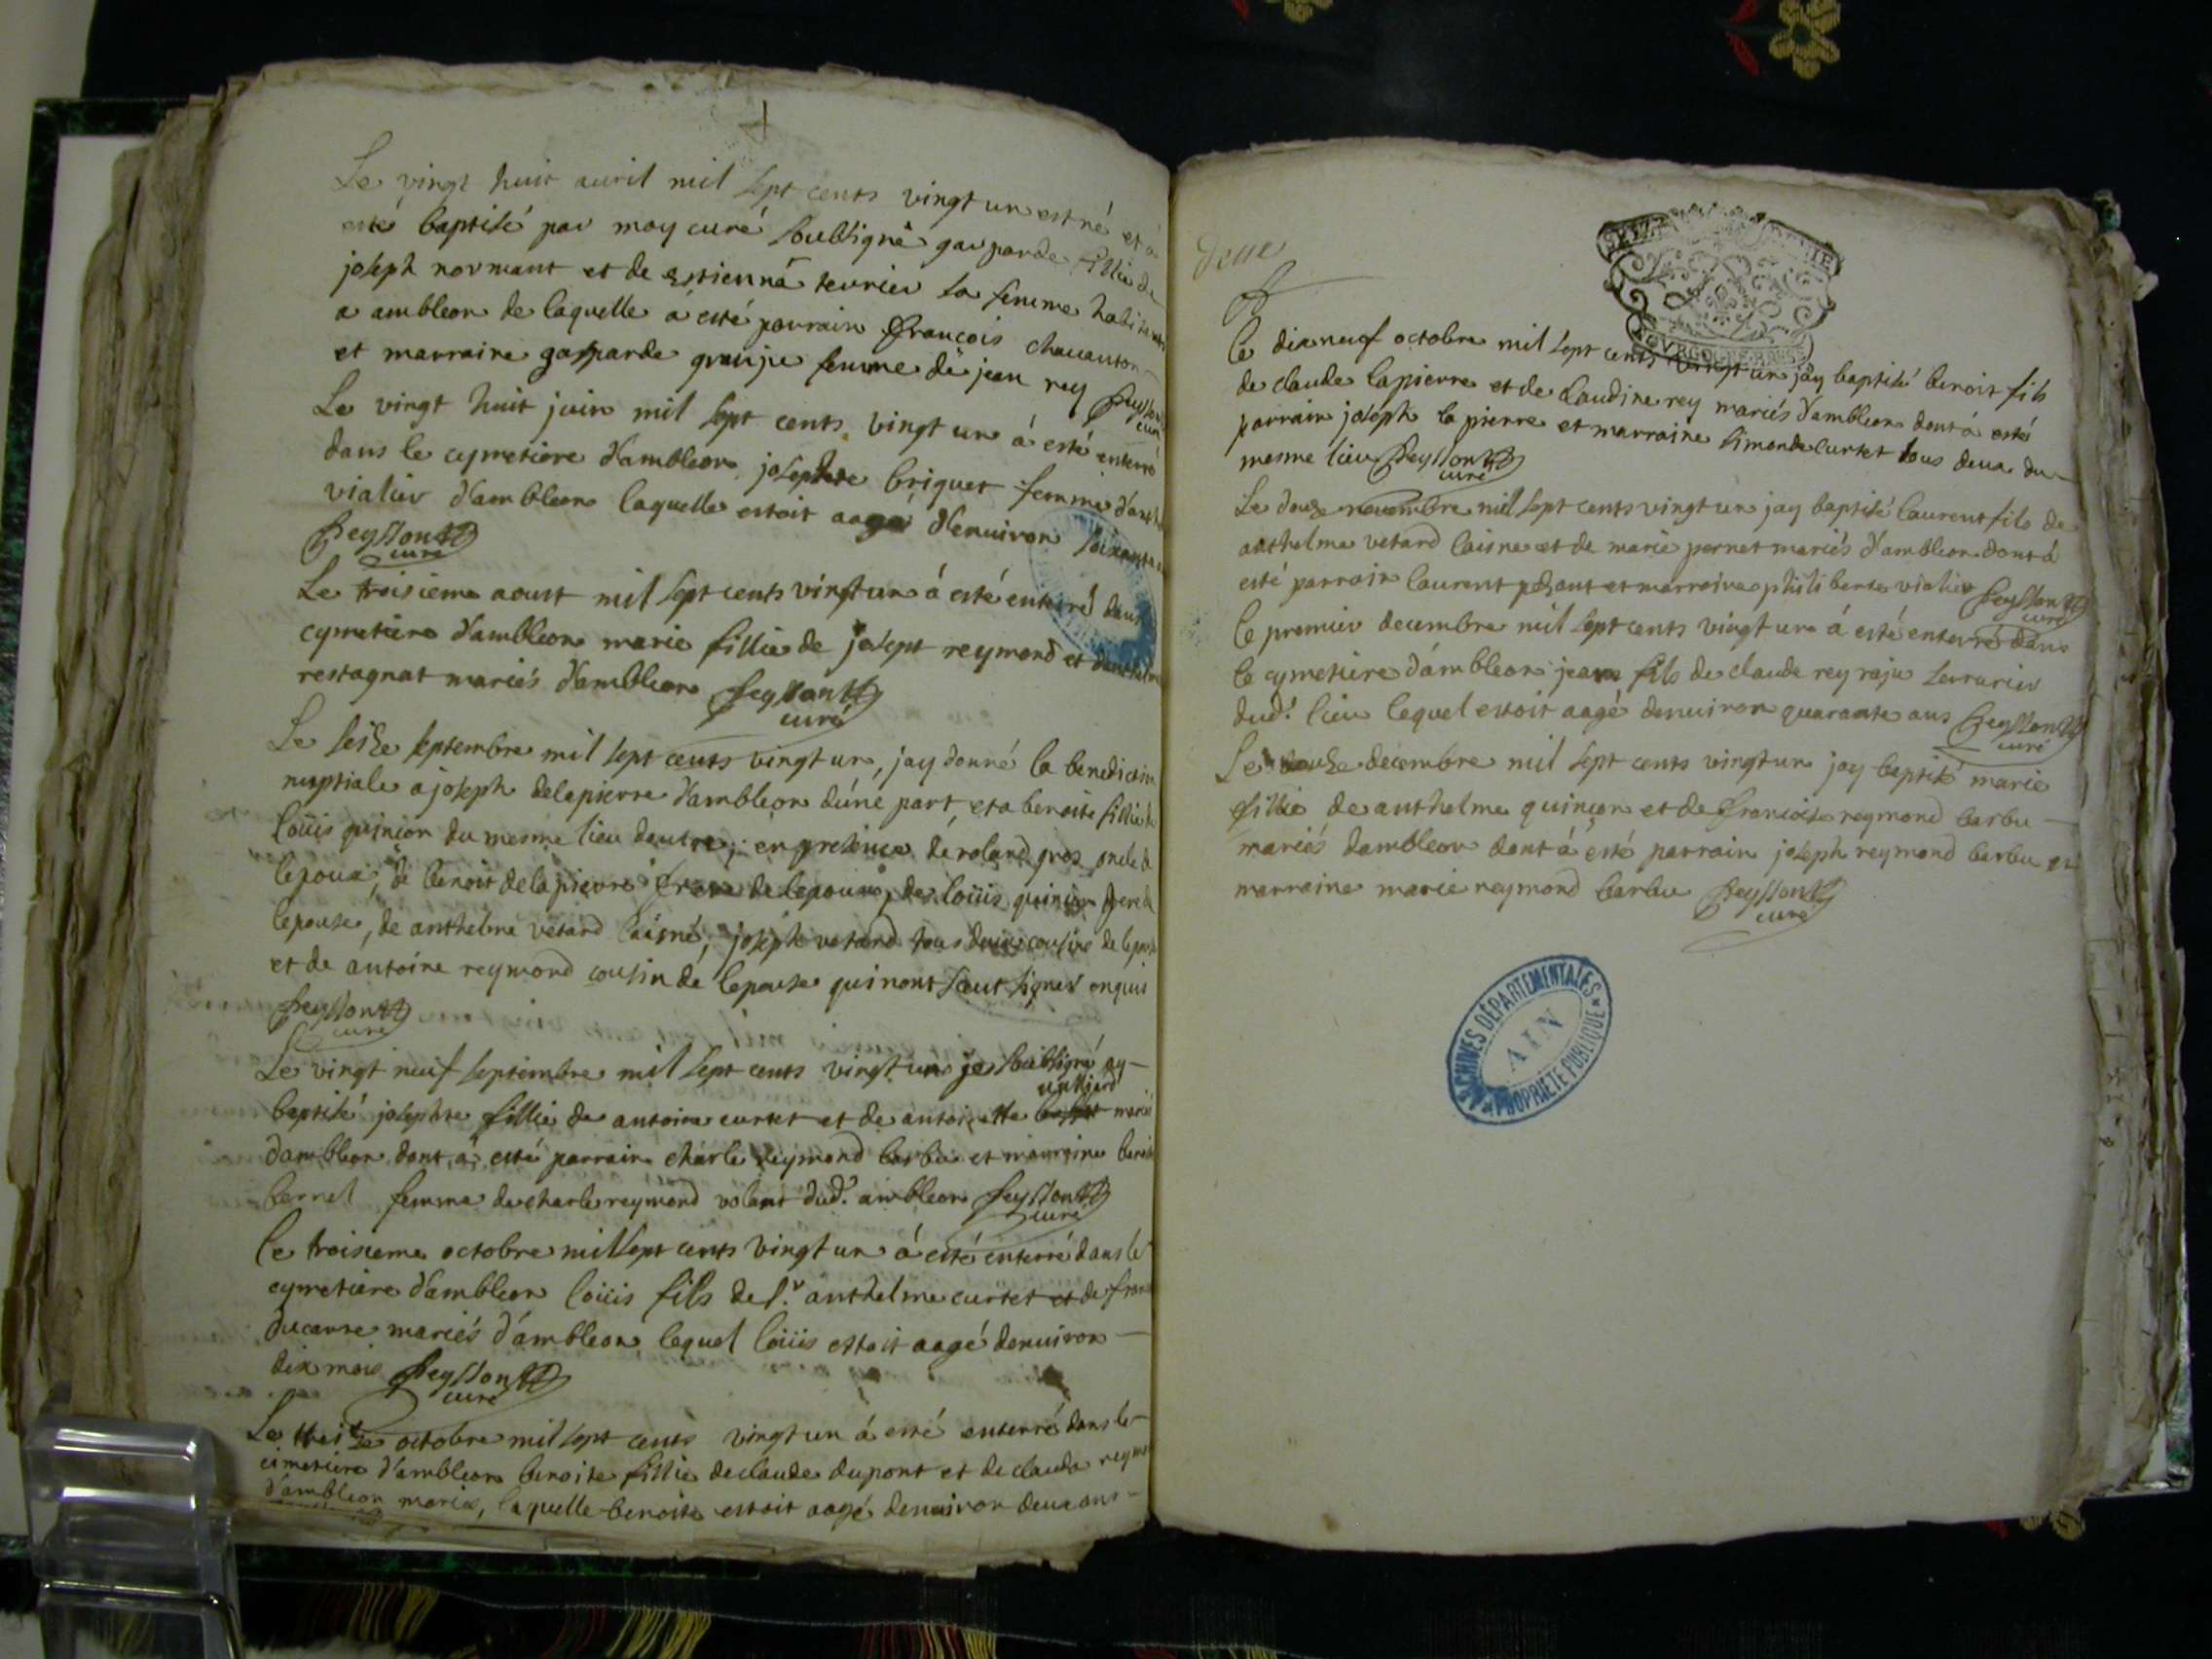 Le vingt huit auril mil sept cents vingt un est né et a
esté baptisé par moy curé soubsigné gasparde fillie de
joseph normant et de estienna teurier sa femme habitants
a ambleon de laquelle á esté parrain françois chauanton
et marraine gasparde granju femme de jean rey Peysson
curé
Le vingt huit juin mil sept cents vingt un á esté enterré
dans le cymetiere d'ambleon josephte briquet femme
vialier d'ambleon laquelle estoit aagé d'enuiron soixante
Peysson
curé
Le troisieme aoust mil sept cents vingt un á esté enterré dans
cymetiere d'ambleon marie fillie de josept reymond et
restagnat mariés d'ambleon Peysson
curé
Le seize septembre mil sept cents vingt un, jay donné la benediction
nuptiale a joseph delapierre d'ambleon d'úne part, et a benoite fillie de
loüis quinson du mesme lieu dautre, en presence de roland gros oncle de
lepoux, de benoit delapierre frere de lepoux, de loüis quinson pere de
lepouse, de anthelme vetard laisné, joseph vetard tous deux cousins de
et de antoine reymond cousin de lepouse qui nont sceut signer enquis
Peysson
curé
Le vingt neuf septembre mil sept cents vingt un je soubsigné ay
baptisé josephte fillie de antoine curtet et de antoinette mariés
d'ambleon dont á esté parrain charle reymond barbu et marraine
bernel femme de charle reymond volant dud.t ambleon Peysson
curé
Le troisieme octobre mil sept cents vingt un á esté enterré dans le
cymetiere d'ambleon loüis fils de s.r anthelme curtet et de
ducarre mariés d'ambleon lequel loüis estoit aagé denuiron
dix mois Peysson
curé
Le treize octobre mil sept cents vingt un á esté enterré dans le
cimetiere d'ambleon benoite fillie de claude dupont et de clauda
d'ambleon mariés, laquelle benoite estoit aagé denuiron deux ans
deue
Le dixneuf octobre mil sept cents vingt un jay baptisé benoit fils
de claude lapierre et de claudine rey mariés d'ambleon dont á esté
parrain joseph lapierre et marraine simonde curtet tous deux du
mesme lieu Peysson
curé
Le douze novembre mil sept cents vingt un jay baptisé laurent fils de
anthelme vetard laisne et de marie pernet mariés d'ambleon dont á
esté parrain laurent et marraine philiberte vialier Peysson
curé
Le premier decembre mil sept cents vingt un á esté enterré dans
le cymetiere d'ambleon jean fils de claude rey raju serrurier
dud.t lieu lequel estoit aagé denuiron quarante ans Peysson
curé
Le douze decembre mil sept cents vingt un jay baptisé marie
fillie de anthelme quinson et de françoise reymond barbu
mariés dambleon dont á esté parrain joseph reymond barbu et
marraine marie reymond barbu Peysson
curé
ARCHIVES DÉPARTEMENTALES
AIN
PROPRIÉTÉ PUBLIQUE